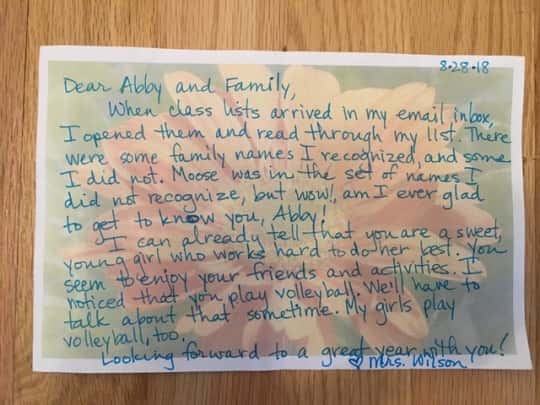 8·28·18
Dear Abby and Family,
When class lists arrived in my email inbox,
I opened them and read through my list. There
were some family names I recognized, and some
I did not. Moose was in the set of names I
did not recognize, but wow!, am I ever glad
to get to know you, Abby!
I can already tell that you are a sweet,
young girl who works hard to do her best. You
seem to enjoy your friends and activities. I
noticed that you play volleyball. We'll have to
talk about that sometime. My girls play
volleyball, too.
Looking forward to a great year with you!
♡ Mrs. Wilson